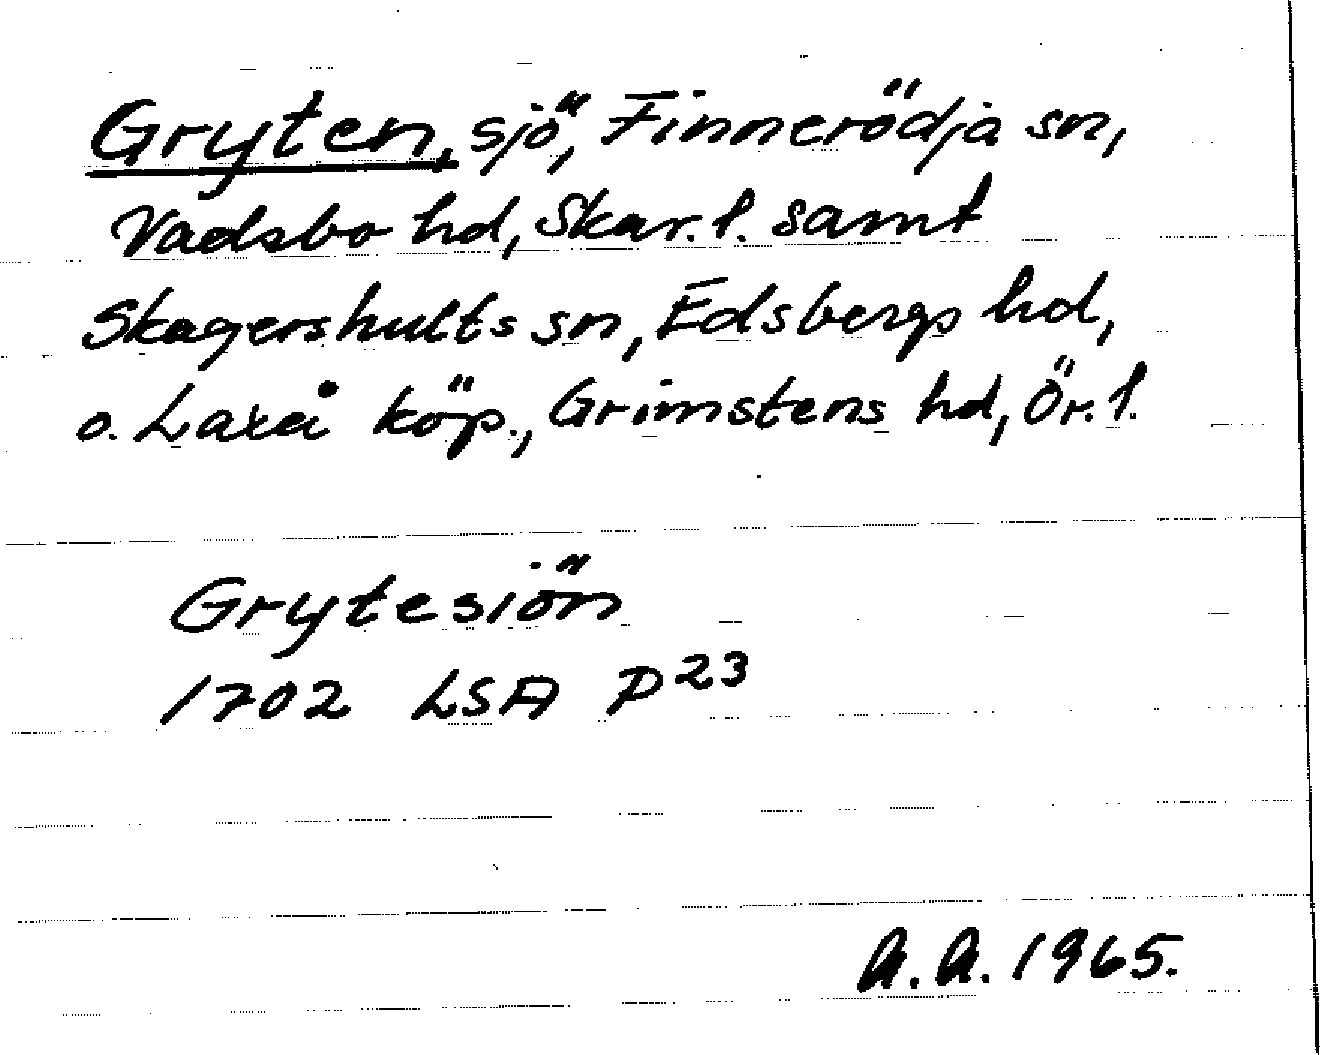 Gryten, sjö, Finnerödja sn,
Vadsbo hd, Skar. l. samt
Skagershults sn, Edsbergs hd,
o. Laxå köp., Grimstens hd, Ör. l.
Grytesiön
1702 LSA P23
A.A. 1965.